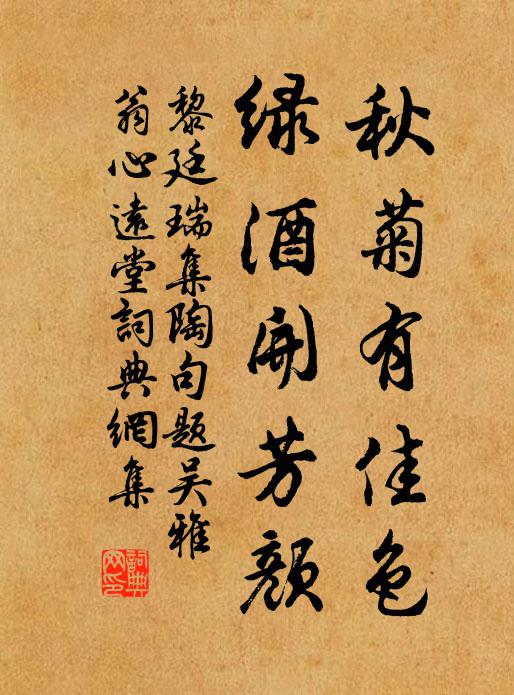 秋菊有佳色
绿酒開芳颜
黎廷瑞集陶句题吴雅
翁心遠堂詞典網集
詞典
网印